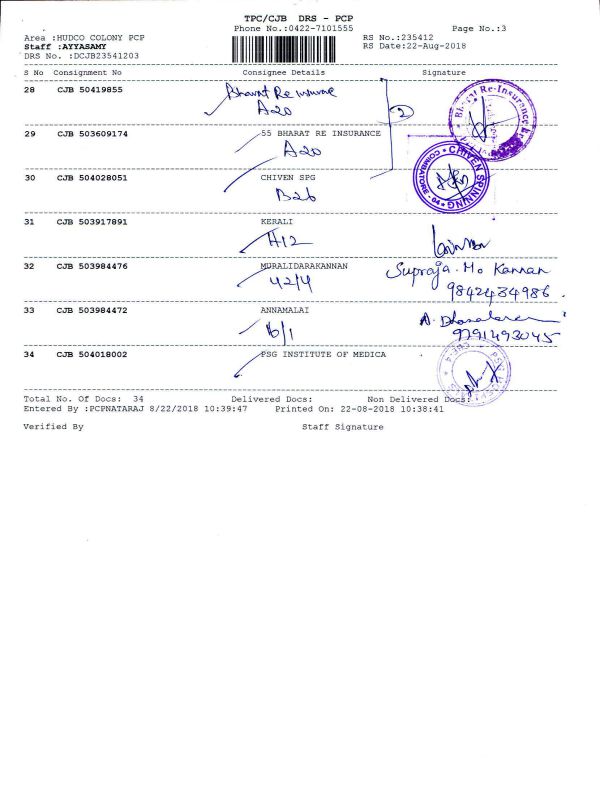 TPC/CJB DRS - PCP
Phone No.:0422-7101555 Page No.:3
Area :HUDCO COLONY PCP RS No.:235412
Staff :AYYASAMY RS Date:22-Aug-2018
DRS No. :DCJB23541203
S No Consignment No Consignee Details Signature
28 CJB 50419855 Bharat Re insurance
A20
2
Bharat Re-Insurance
29 CJB 503609174 55 BHARAT RE INSURANCE
A20
30 CJB 504028051 CHIVEN SPG
B26
CHIVEN SPINNING
COIMBATORE
31 CJB 503917891 KERALI
H12
32 CJB 503984476 MURALIDARAKANNAN Supraja. Mo Kannan
42/4 9842484986.
33 CJB 503984472 ANNAMALAI
6/1 9791493045
34 CJB 504018002 PSG INSTITUTE OF MEDICA
Total No. Of Docs: 34 Delivered Docs: Non Delivered Docs:
Entered By :PCPNATARAJ 8/22/2018 10:39:47 Printed On: 22-08-2018 10:38:41
Verified By Staff Signature